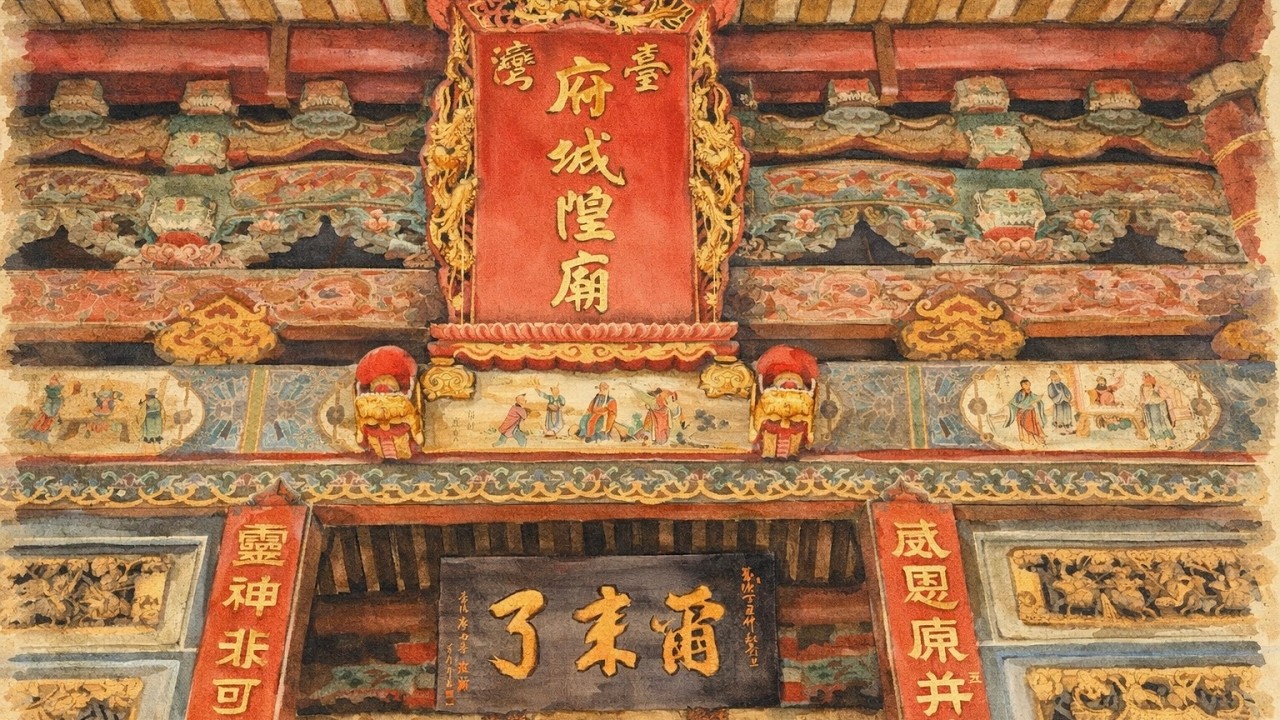 臺灣
府城隍廟
爾來了
威恩原并
靈神非可